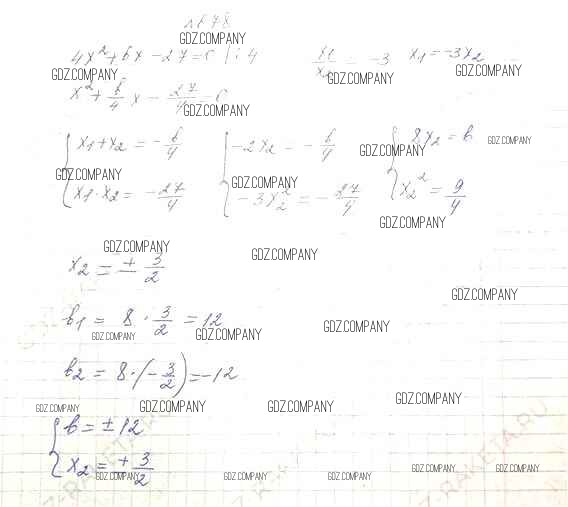 № 78
GDZ.COMPANY
4x² + bx - 27 = 0 | : 4
x₁/x₂ = -3 x₁ = -3x₂
GDZ.COMPANY GDZ.COMPANY GDZ.COMPANY
x² + b/4 x - 27/4 = 0
GDZ.COMPANY
x₁ + x₂ = - b/4
-2x₂ = - b/4
8x₂ = b
GDZ.COMPANY GDZ.COMPANY
GDZ.COMPANY GDZ.COMPANY
x₁ · x₂ = - 27/4
-3x₂² = - 27/4
x₂² = 9/4
GDZ.COMPANY GDZ.COMPANY
x₂ = ± 3/2
GDZ.COMPANY
b₁ = 8 · 3/2 = 12
GDZ.COMPANY GDZ.COMPANY GDZ.COMPANY
b₂ = 8 · (- 3/2) = -12
GDZ.COMPANY GDZ.COMPANY GDZ.COMPANY GDZ.COMPANY
b = ± 12
x₂ = ± 3/2
GDZ.COMPANY GDZ.COMPANY GDZ.COMPANY GDZ.COMPANY GDZ.COMPANY